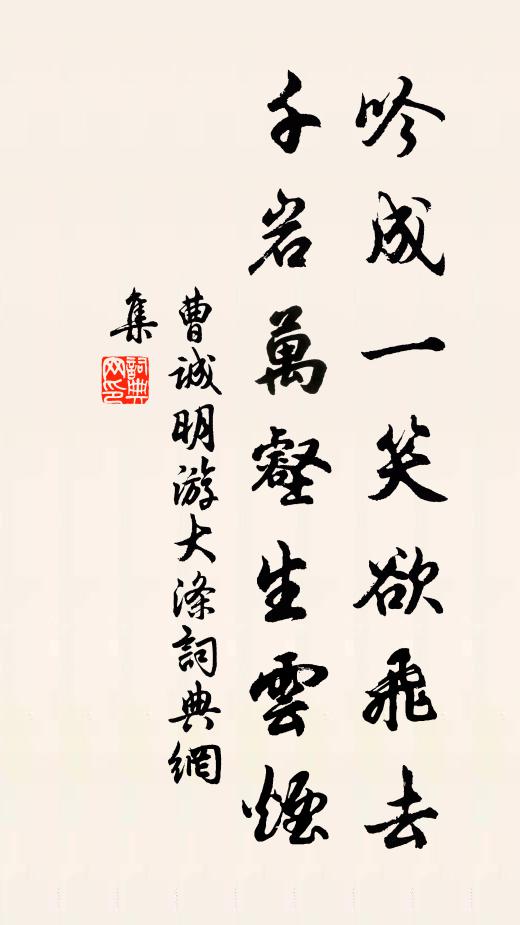 吟成一笑欲飛去
千岩萬壑生雲煙
曹誠明游大滌詞典網
集
詞典網印